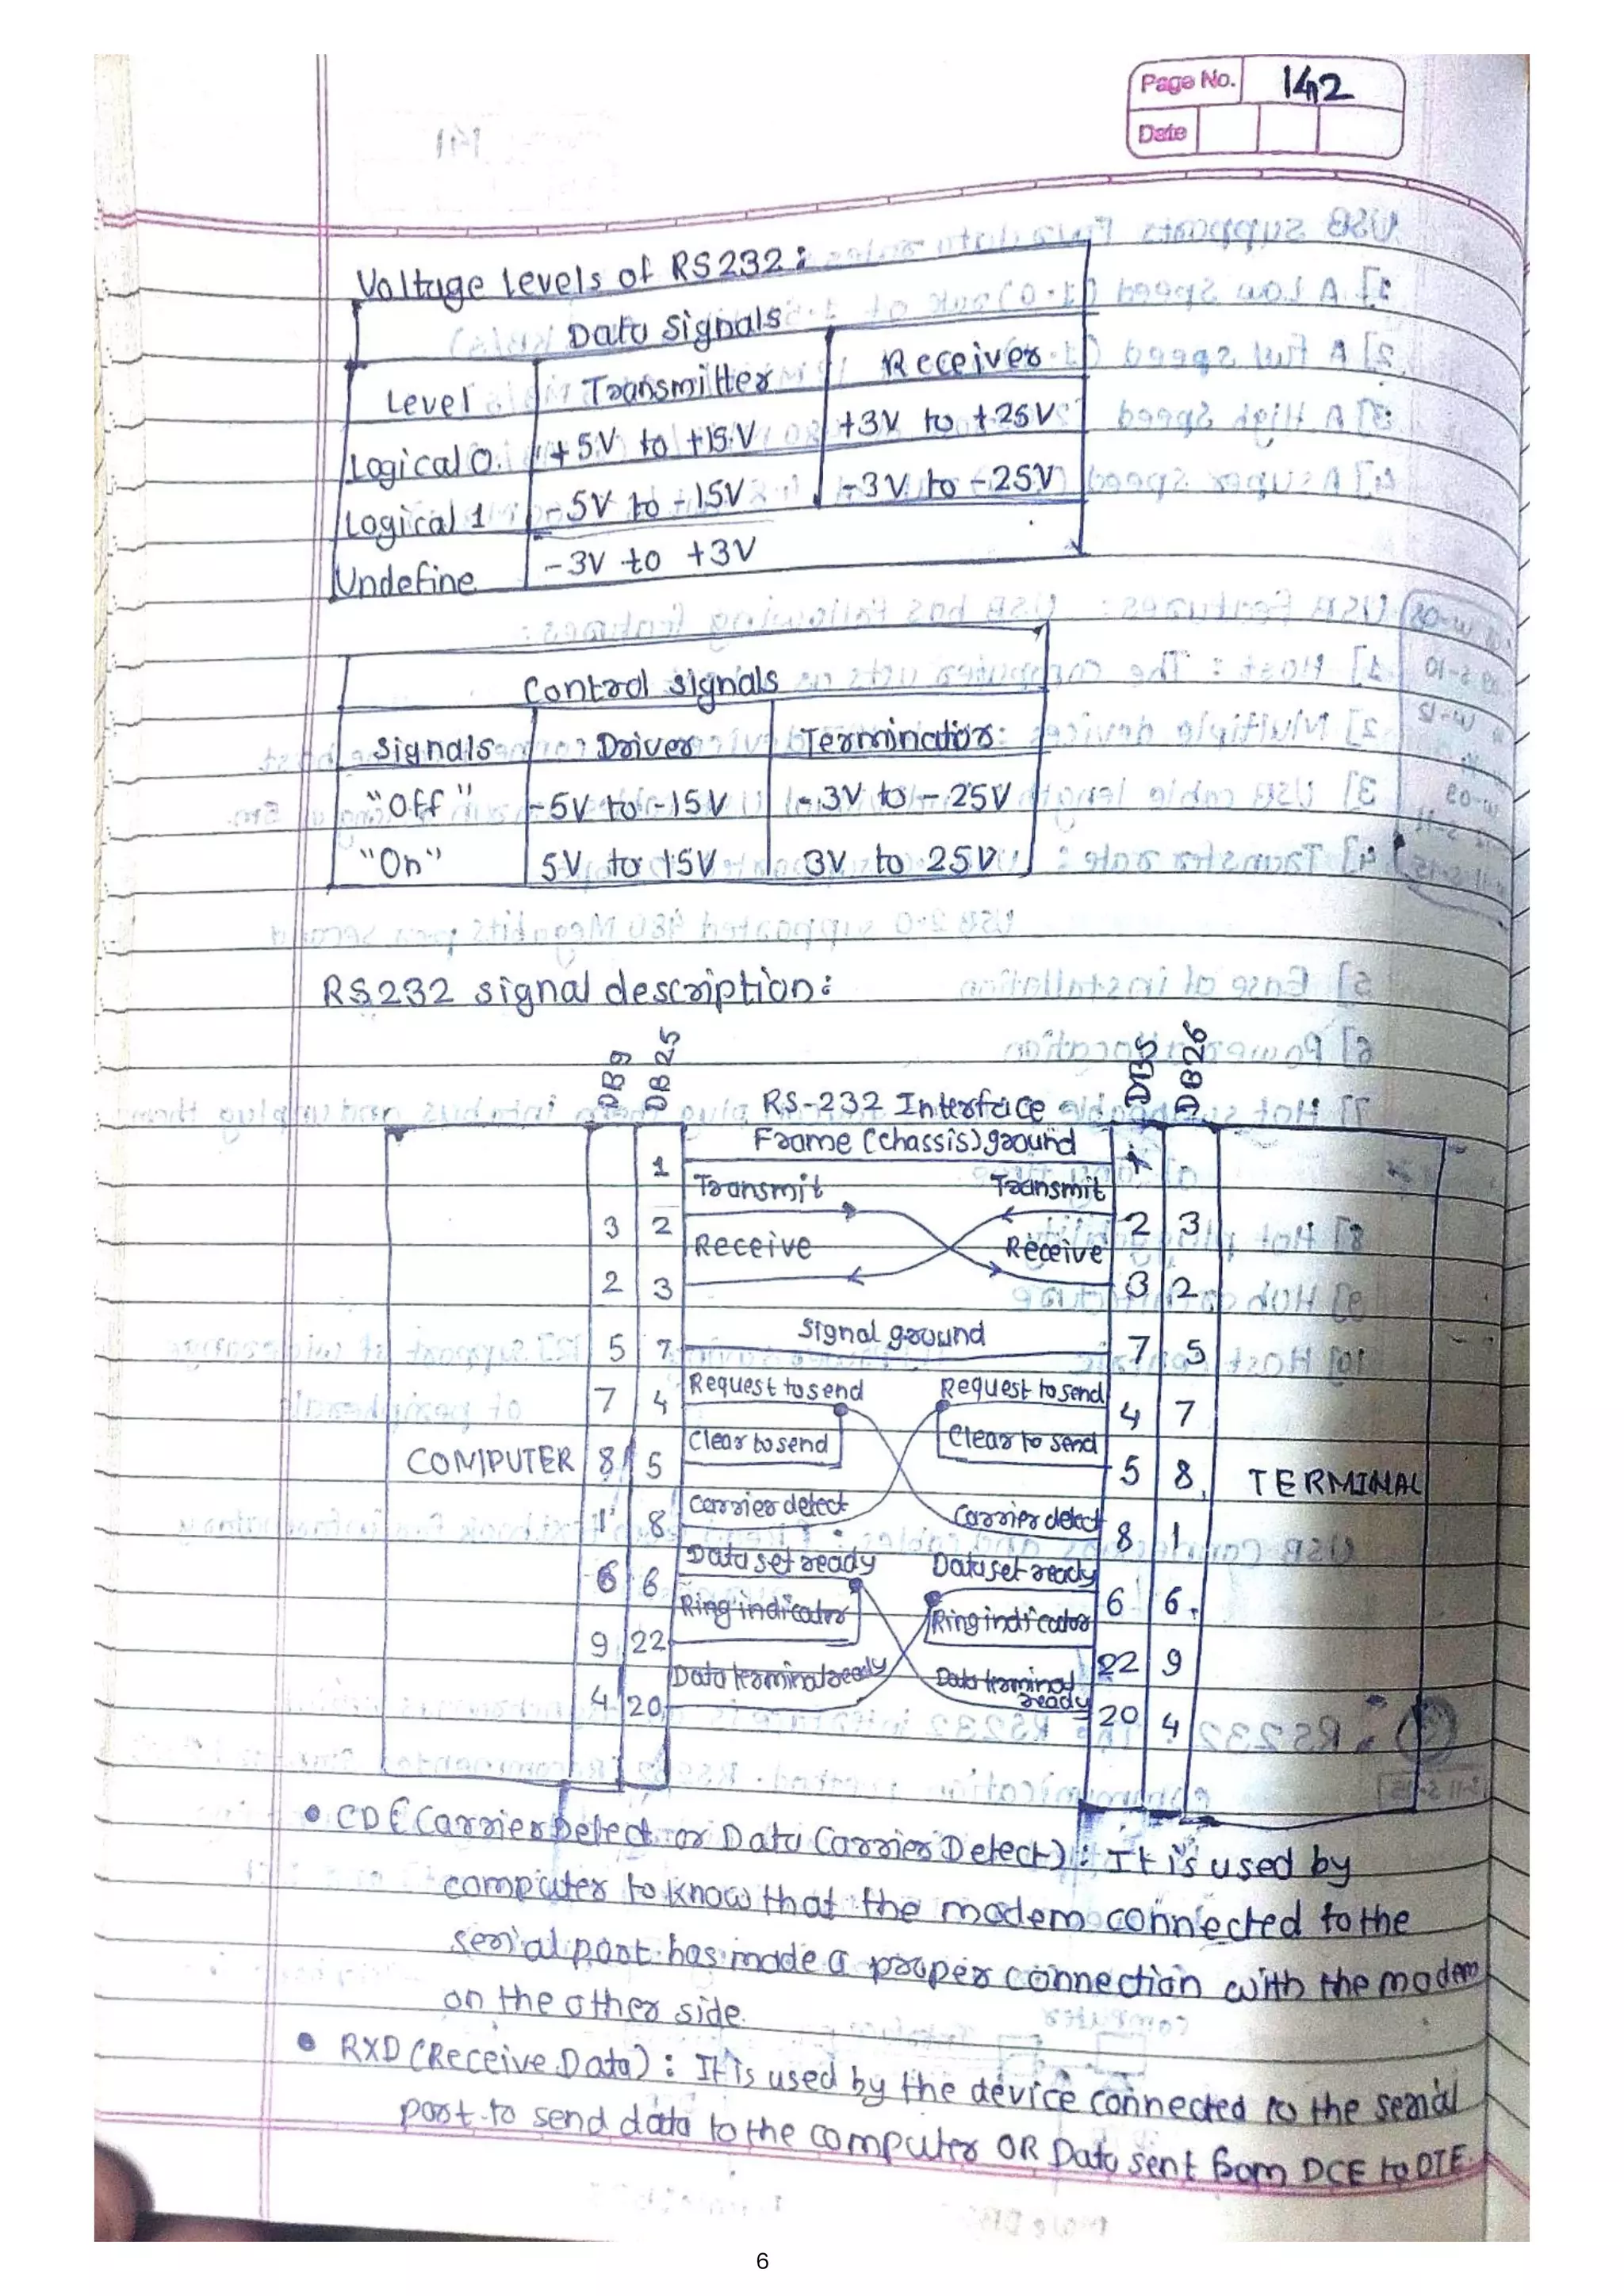 Page No. 142
Date
Voltage levels of RS232:
Data signals
Level Transmitter Receiver
Logical 0. +5V to +15V +3V to +25V
Logical 1 -5V to -15V -3V to -25V
Undefine -3V to +3V
Control signals
Signals Driver Terminator
"Off" -5V to -15V -3V to -25V
"On" 5V to 15V 3V to 25V
RS232 signal description:
DB9 DB25 DB26
RS-232 Interface
Frame (chassis) ground
1 1
Transmit Transmit
3 2 2 3
Receive Receive
2 3 3 2
Signal ground
5 7 7 5
Request to send Request to send
7 4 4 7
Clear to send Clear to send
COMPUTER 8 5 5 8 TERMINAL
Carrier detect Carrier detect
1 8 8 1
Data set ready Data set ready
6 6 6 6
Ring indicator Ring indicator
9 22 22 9
Data terminal ready Data terminal ready
4 20 20 4
• CD (Carrier Detect or Data Carrier Detect): It is used by
computer to know that the modem connected to the
serial port has made a proper connection with the modem
on the other side.
• RXD (Receive Data): It is used by the device connected to the serial
port to send data to the computer OR Data sent from DCE to DTE.
6